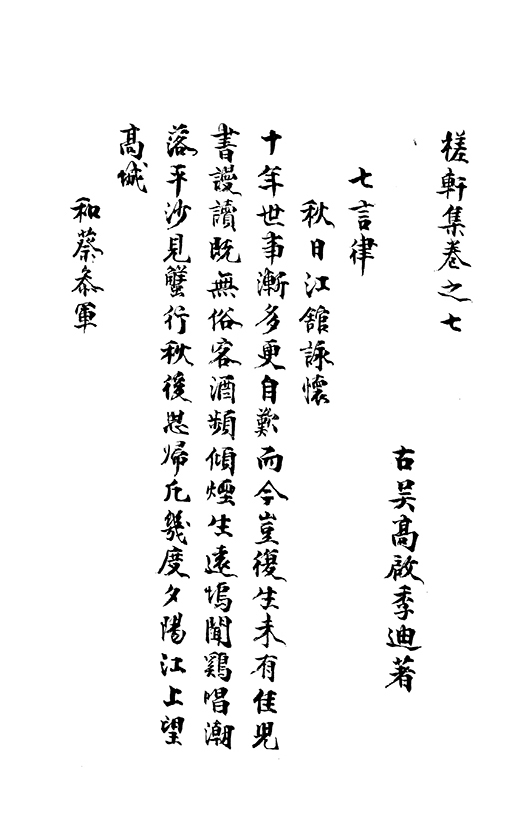 槎軒集卷之七
古吴高啟季迪著
七言律
秋日江舘詠懷
十年世事漸多更自歎而今豈復生未有佳兒
書謾讀既無俗客酒頻傾煙生遠塢聞鷄唱潮
落平沙見蟹行秋後思歸凢幾度夕陽江上望
高城
和蔡叅軍